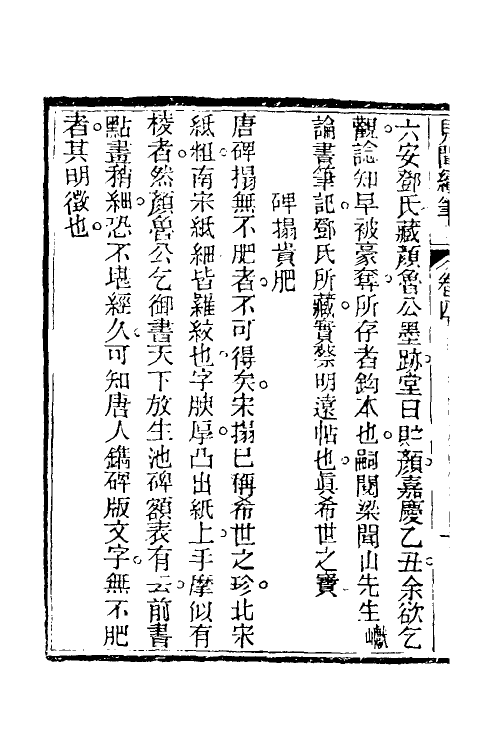 見聞續筆 卷四
六安鄧氏藏顏魯公墨跡堂曰貯顏嘉慶乙丑余欲乞
觀諗知早被豪奪所存者鈎本也嗣閱梁聞山先生巘
論書筆記鄧氏所藏實蔡明遠帖也眞希世之寶
碑搨貴肥
唐碑搨無不肥者不可得矣宋搨已稱希世之珍北宋
紙粗南宋紙細皆羅紋也字腴厚凸出紙上手摩似有
棱者然顏魯公乞御書天下放生池碑額表有云前書
點畫稍細恐不堪經久可知唐人鐫碑版文字無不肥
者其明徵也